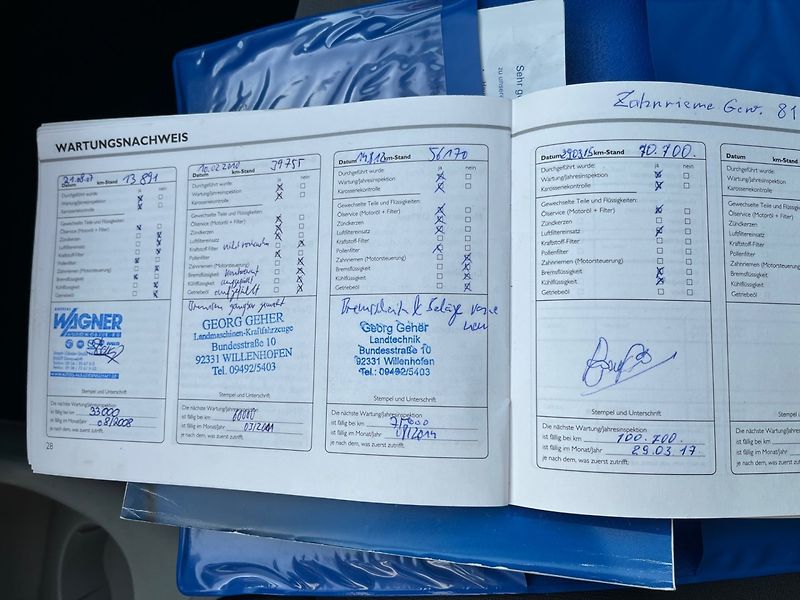 Sehr ge
zu unsere
Zahnrieme Gew. 81
WARTUNGSNACHWEIS
Datum 21.08.07 km-Stand 13 891
ja nein
Durchgeführt wurde:
Wartung/Jahresinspektion
Karosseriekontrolle
Gewechselte Teile und Flüssigkeiten:
Ölservice (Motoröl + Filter)
Zündkerzen
Luftfiltereinsatz
Kraftstoff-Filter
Pollenfilter
Zahnriemen (Motorsteuerung)
Bremsflüssigkeit
Kühlflüssigkeit
Getriebeöl
WAGNER
Stempel und Unterschrift
Die nächste Wartung/Jahresinspektion
ist fällig bei km 33000
ist fällig im Monat/Jahr 08/2008
je nach dem, was zuerst zutrifft.
28
Datum 10.02.2010 km-Stand 39755
ja nein
Durchgeführt wurde:
Wartung/Jahresinspektion
Karosseriekontrolle
Gewechselte Teile und Flüssigkeiten:
Ölservice (Motoröl + Filter)
Zündkerzen
Luftfiltereinsatz
Kraftstoff-Filter
Pollenfilter
Zahnriemen (Motorsteuerung)
Bremsflüssigkeit
Kühlflüssigkeit
Getriebeöl
Bremsen gangbar gemacht
GEORG GEHER
Landmaschinen-Kraftfahrzeuge
Bundesstraße 10
92331 WILLENHOFEN
Tel. 09492/5403
Stempel und Unterschrift
Die nächste Wartung/Jahresinspektion
ist fällig bei km 60000
ist fällig im Monat/Jahr 03/2011
je nach dem, was zuerst zutrifft.
Datum km-Stand 56170
ja nein
Durchgeführt wurde:
Wartung/Jahresinspektion
Karosseriekontrolle
Gewechselte Teile und Flüssigkeiten:
Ölservice (Motoröl + Filter)
Zündkerzen
Luftfiltereinsatz
Kraftstoff-Filter
Pollenfilter
Zahnriemen (Motorsteuerung)
Bremsflüssigkeit
Kühlflüssigkeit
Getriebeöl
Bremsscheib & Beläge vorne
neu
Georg Geher
Landtechnik
Bundesstraße 10
92331 Willenhofen
Tel.: 09492/5403
Stempel und Unterschrift
Die nächste Wartung/Jahresinspektion
ist fällig bei km
ist fällig im Monat/Jahr
je nach dem, was zuerst zutrifft.
Datum km-Stand 70.700.
ja nein
Durchgeführt wurde:
Wartung/Jahresinspektion
Karosseriekontrolle
Gewechselte Teile und Flüssigkeiten:
Ölservice (Motoröl + Filter)
Zündkerzen
Luftfiltereinsatz
Kraftstoff-Filter
Pollenfilter
Zahnriemen (Motorsteuerung)
Bremsflüssigkeit
Kühlflüssigkeit
Getriebeöl
Stempel und Unterschrift
Die nächste Wartung/Jahresinspektion
ist fällig bei km 100.700.
ist fällig im Monat/Jahr 29.03.17
je nach dem, was zuerst zutrifft.
Datum km-Stan
Durchgeführt wurde:
Wartung/Jahresinspek
Karosseriekontrolle
Gewechselte Teile und
Ölservice (Motoröl + F
Zündkerzen
Luftfiltereinsatz
Kraftstoff-Filter
Pollenfilter
Zahnriemen (Motorste
Bremsflüssigkeit
Kühlflüssigkeit
Getriebeöl
Die nächste Wartung/Ja
ist fällig bei km
ist fällig im Monat/Jahr
je nach dem, was zuerst